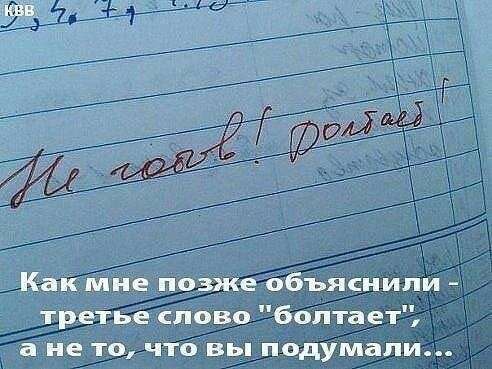 КВВ
9, 4. 7,
Не готов! Болтает!
Как мне позже объяснили -
третье слово "болтает",
а не то, что вы подумали...